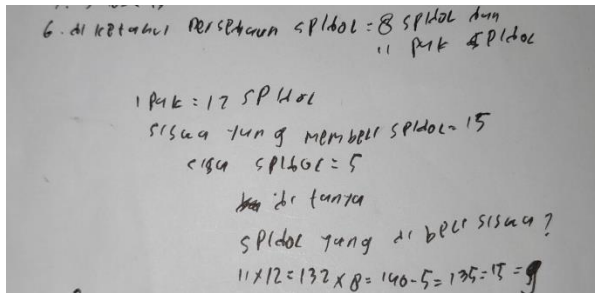 6. di ketahui persediaan spidol = 8 spidol dan
11 pak spidol
1 pak = 12 spidol
siswa yang membeli spidol = 15
sisa spidol = 5
di tanya
spidol yang di beli siswa?
11x12 = 132 x 8 = 140 - 5 = 135 = 15 = 9